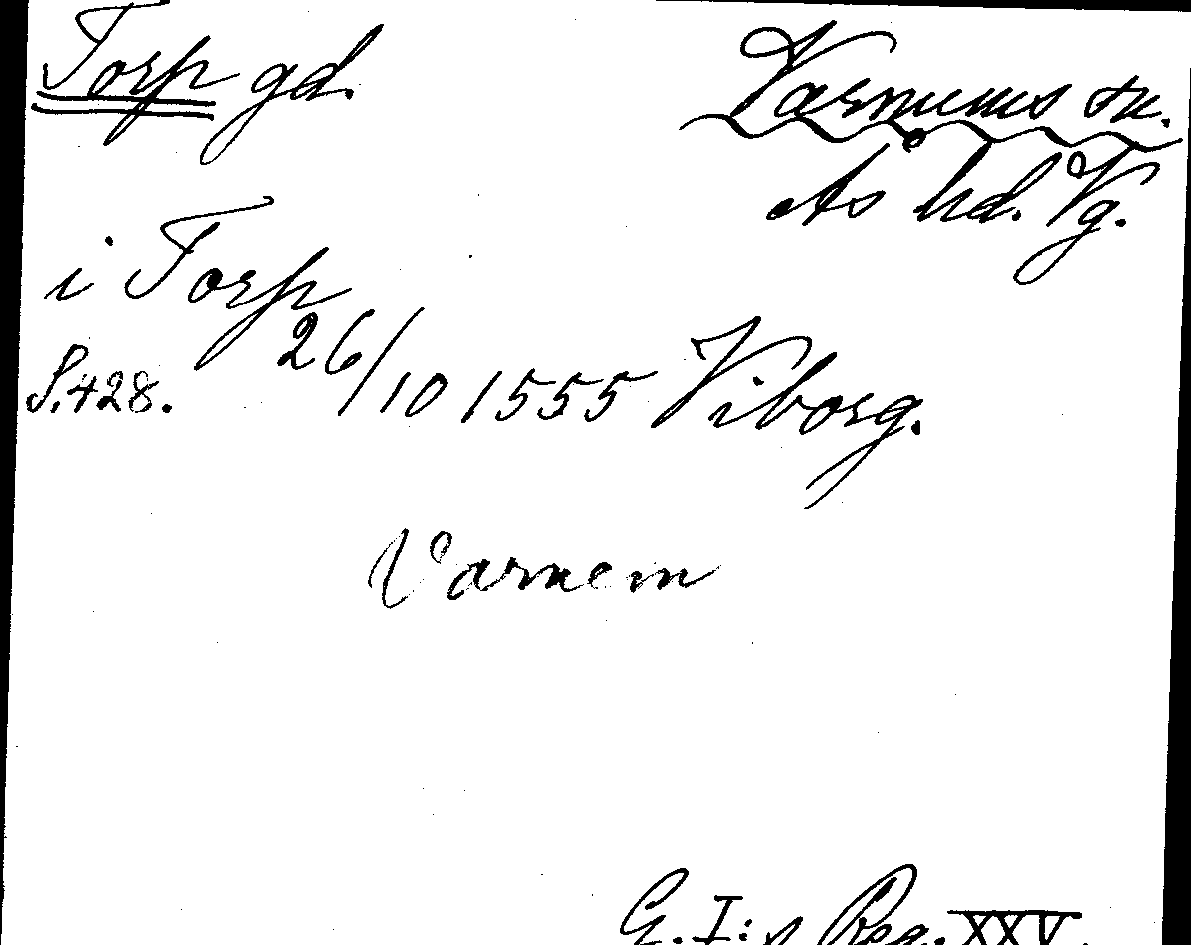 Torp gd.
Varnums sn.
Ås hd. Vg.
i Torp
S. 428. 26/10 1555 Viborg.
Varnem
G. I:s Reg. XXV.